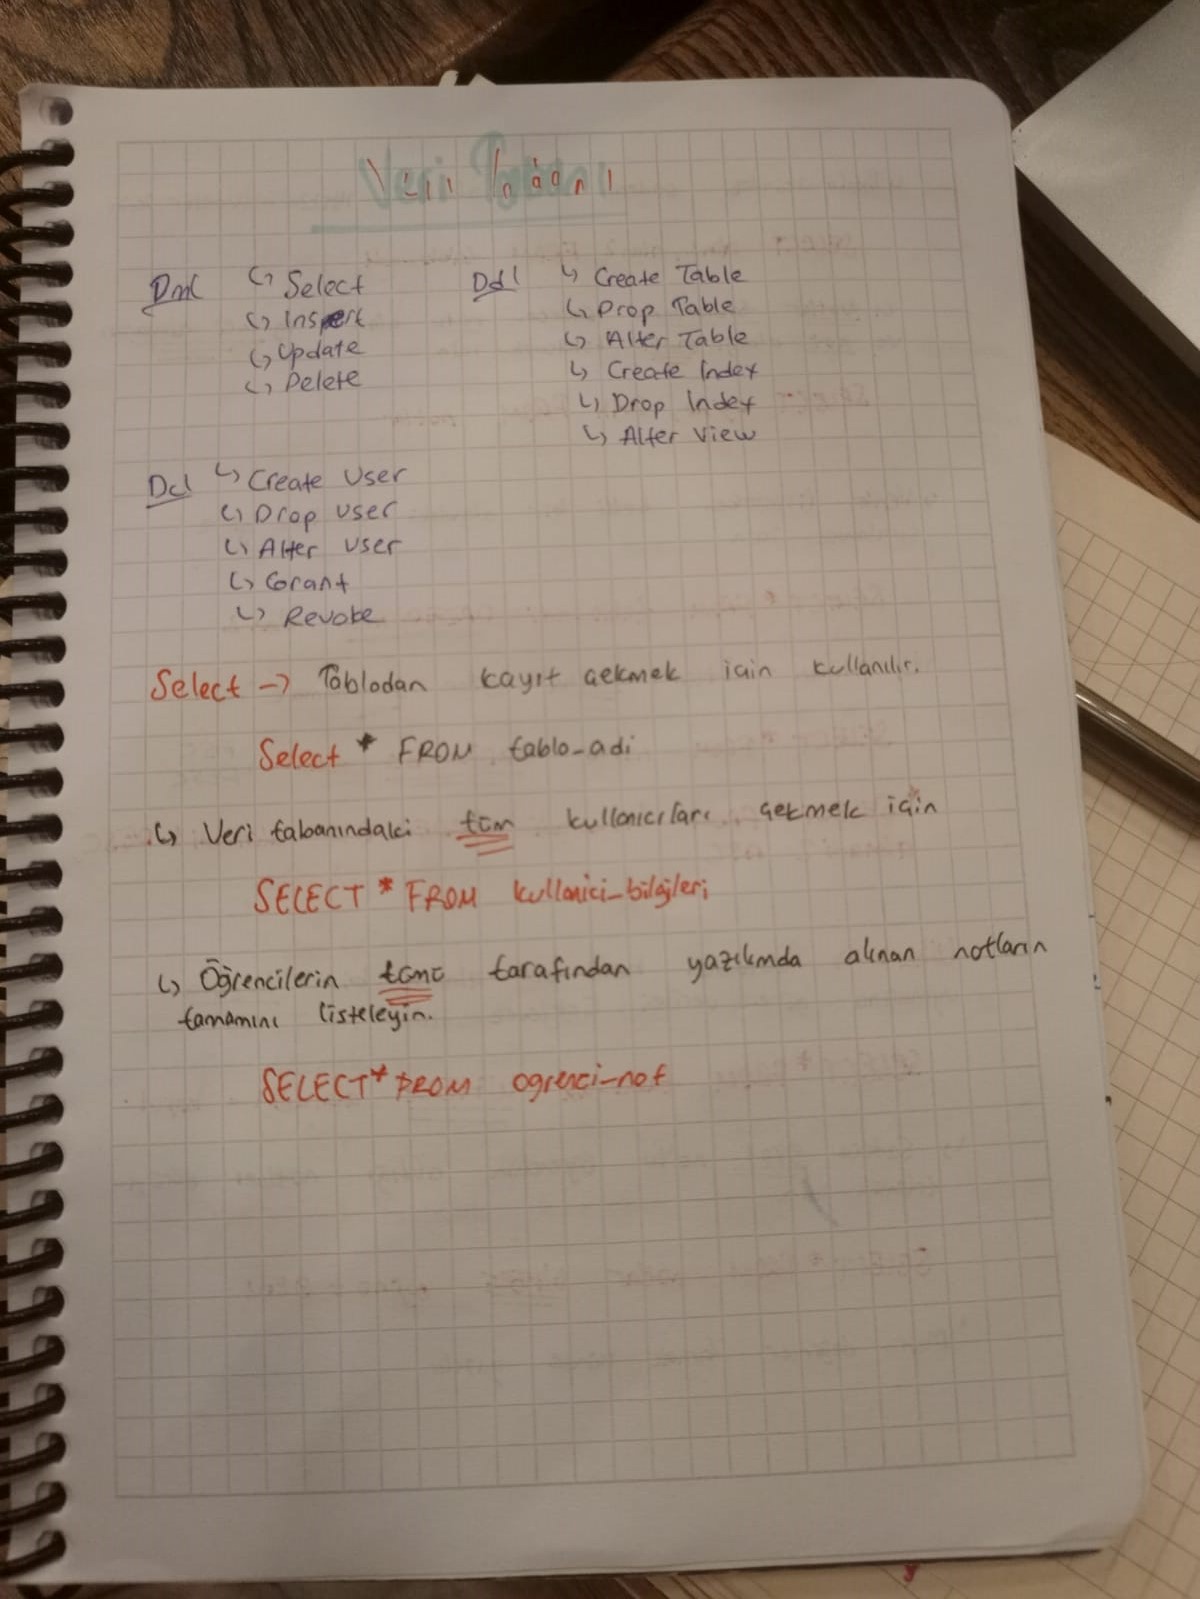 Veri Tabanı
Dml ↳ Select
↳ Inspert
↳ Update
↳ Delete
Ddl ↳ Create Table
↳ Drop Table
↳ Alter Table
↳ Create Index
↳ Drop Index
↳ Alter View
Dcl ↳ Create User
↳ Drop User
↳ Alter User
↳ Grant
↳ Revoke
Select → Tablodan kayıt çekmek için kullanılır.
Select * FROM tablo_adi
↳ Veri tabanındaki tüm kullanıcıları çekmek için
SELECT * FROM kullanici_bilgileri
↳ Öğrencilerin tümü tarafından yazılımda alınan notların
tamamını listeleyin.
SELECT * FROM ogrenci_not